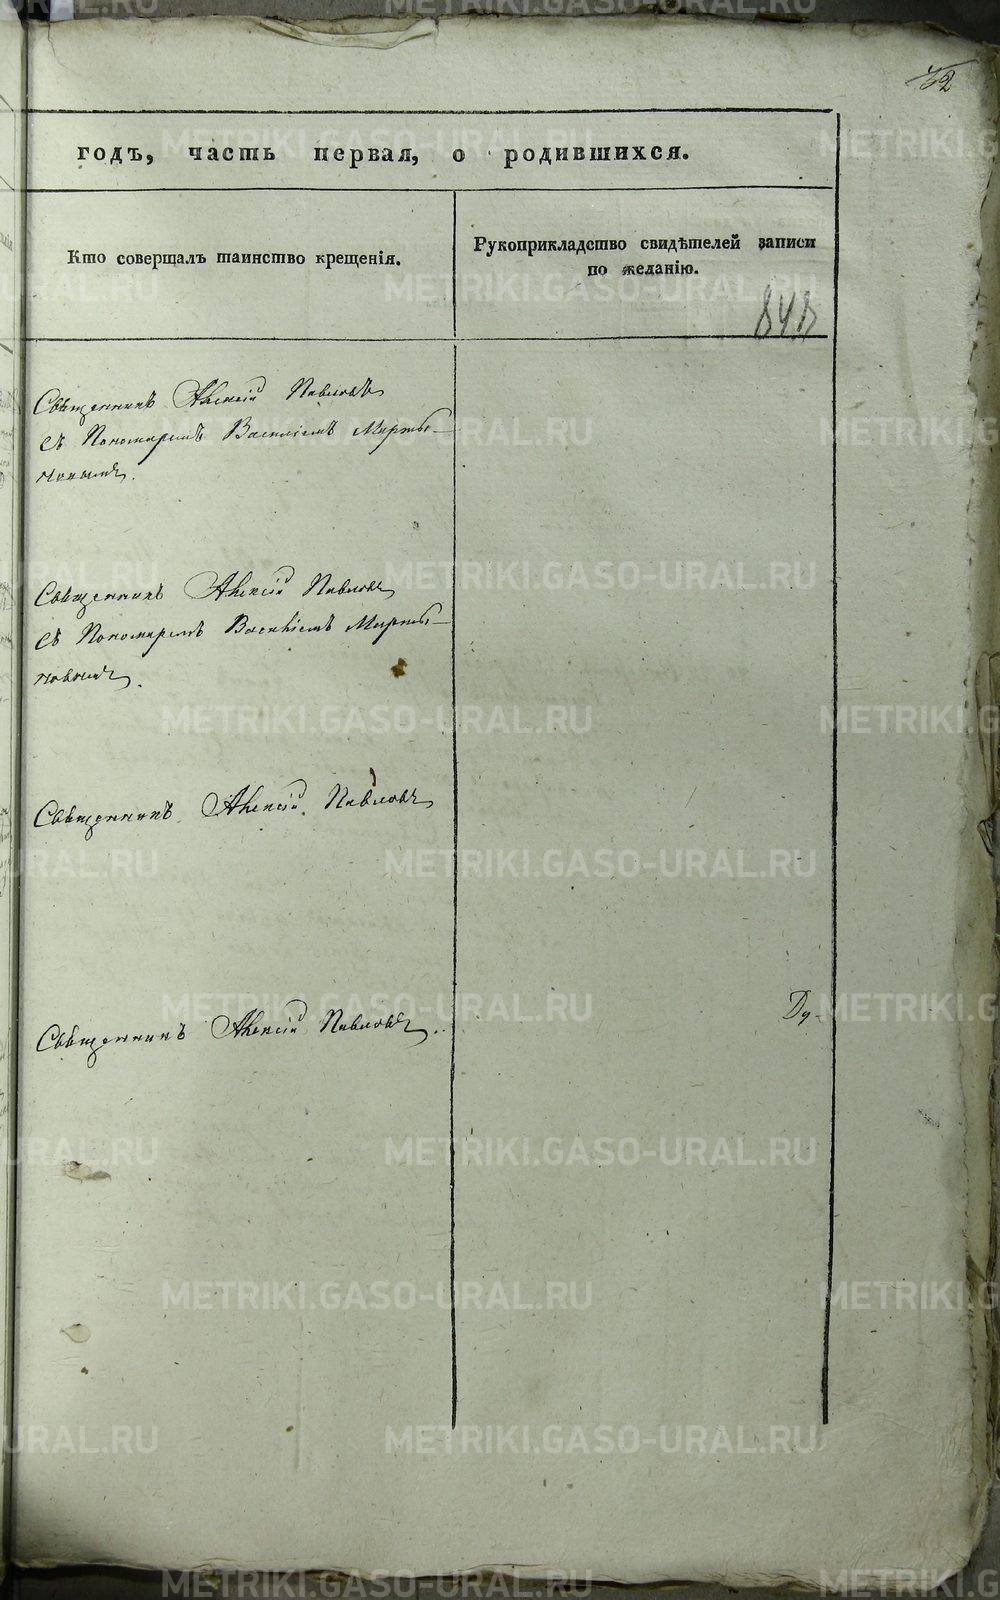 годъ, часть первая, о родившихся.
Кто совершалъ таинство крещенія.
Рукоприкладство свидѣтелей записи
по желанію.
848
Священникъ Алексій Павловъ
съ Пономаремъ Василіемъ Марты-
новымъ.
Священникъ Алексій Павловъ
съ Пономаремъ Василіемъ Марты-
новымъ.
Священникъ Алексій Павловъ
Священникъ Алексій Павловъ.
METRIKI.GASO-URAL.RU